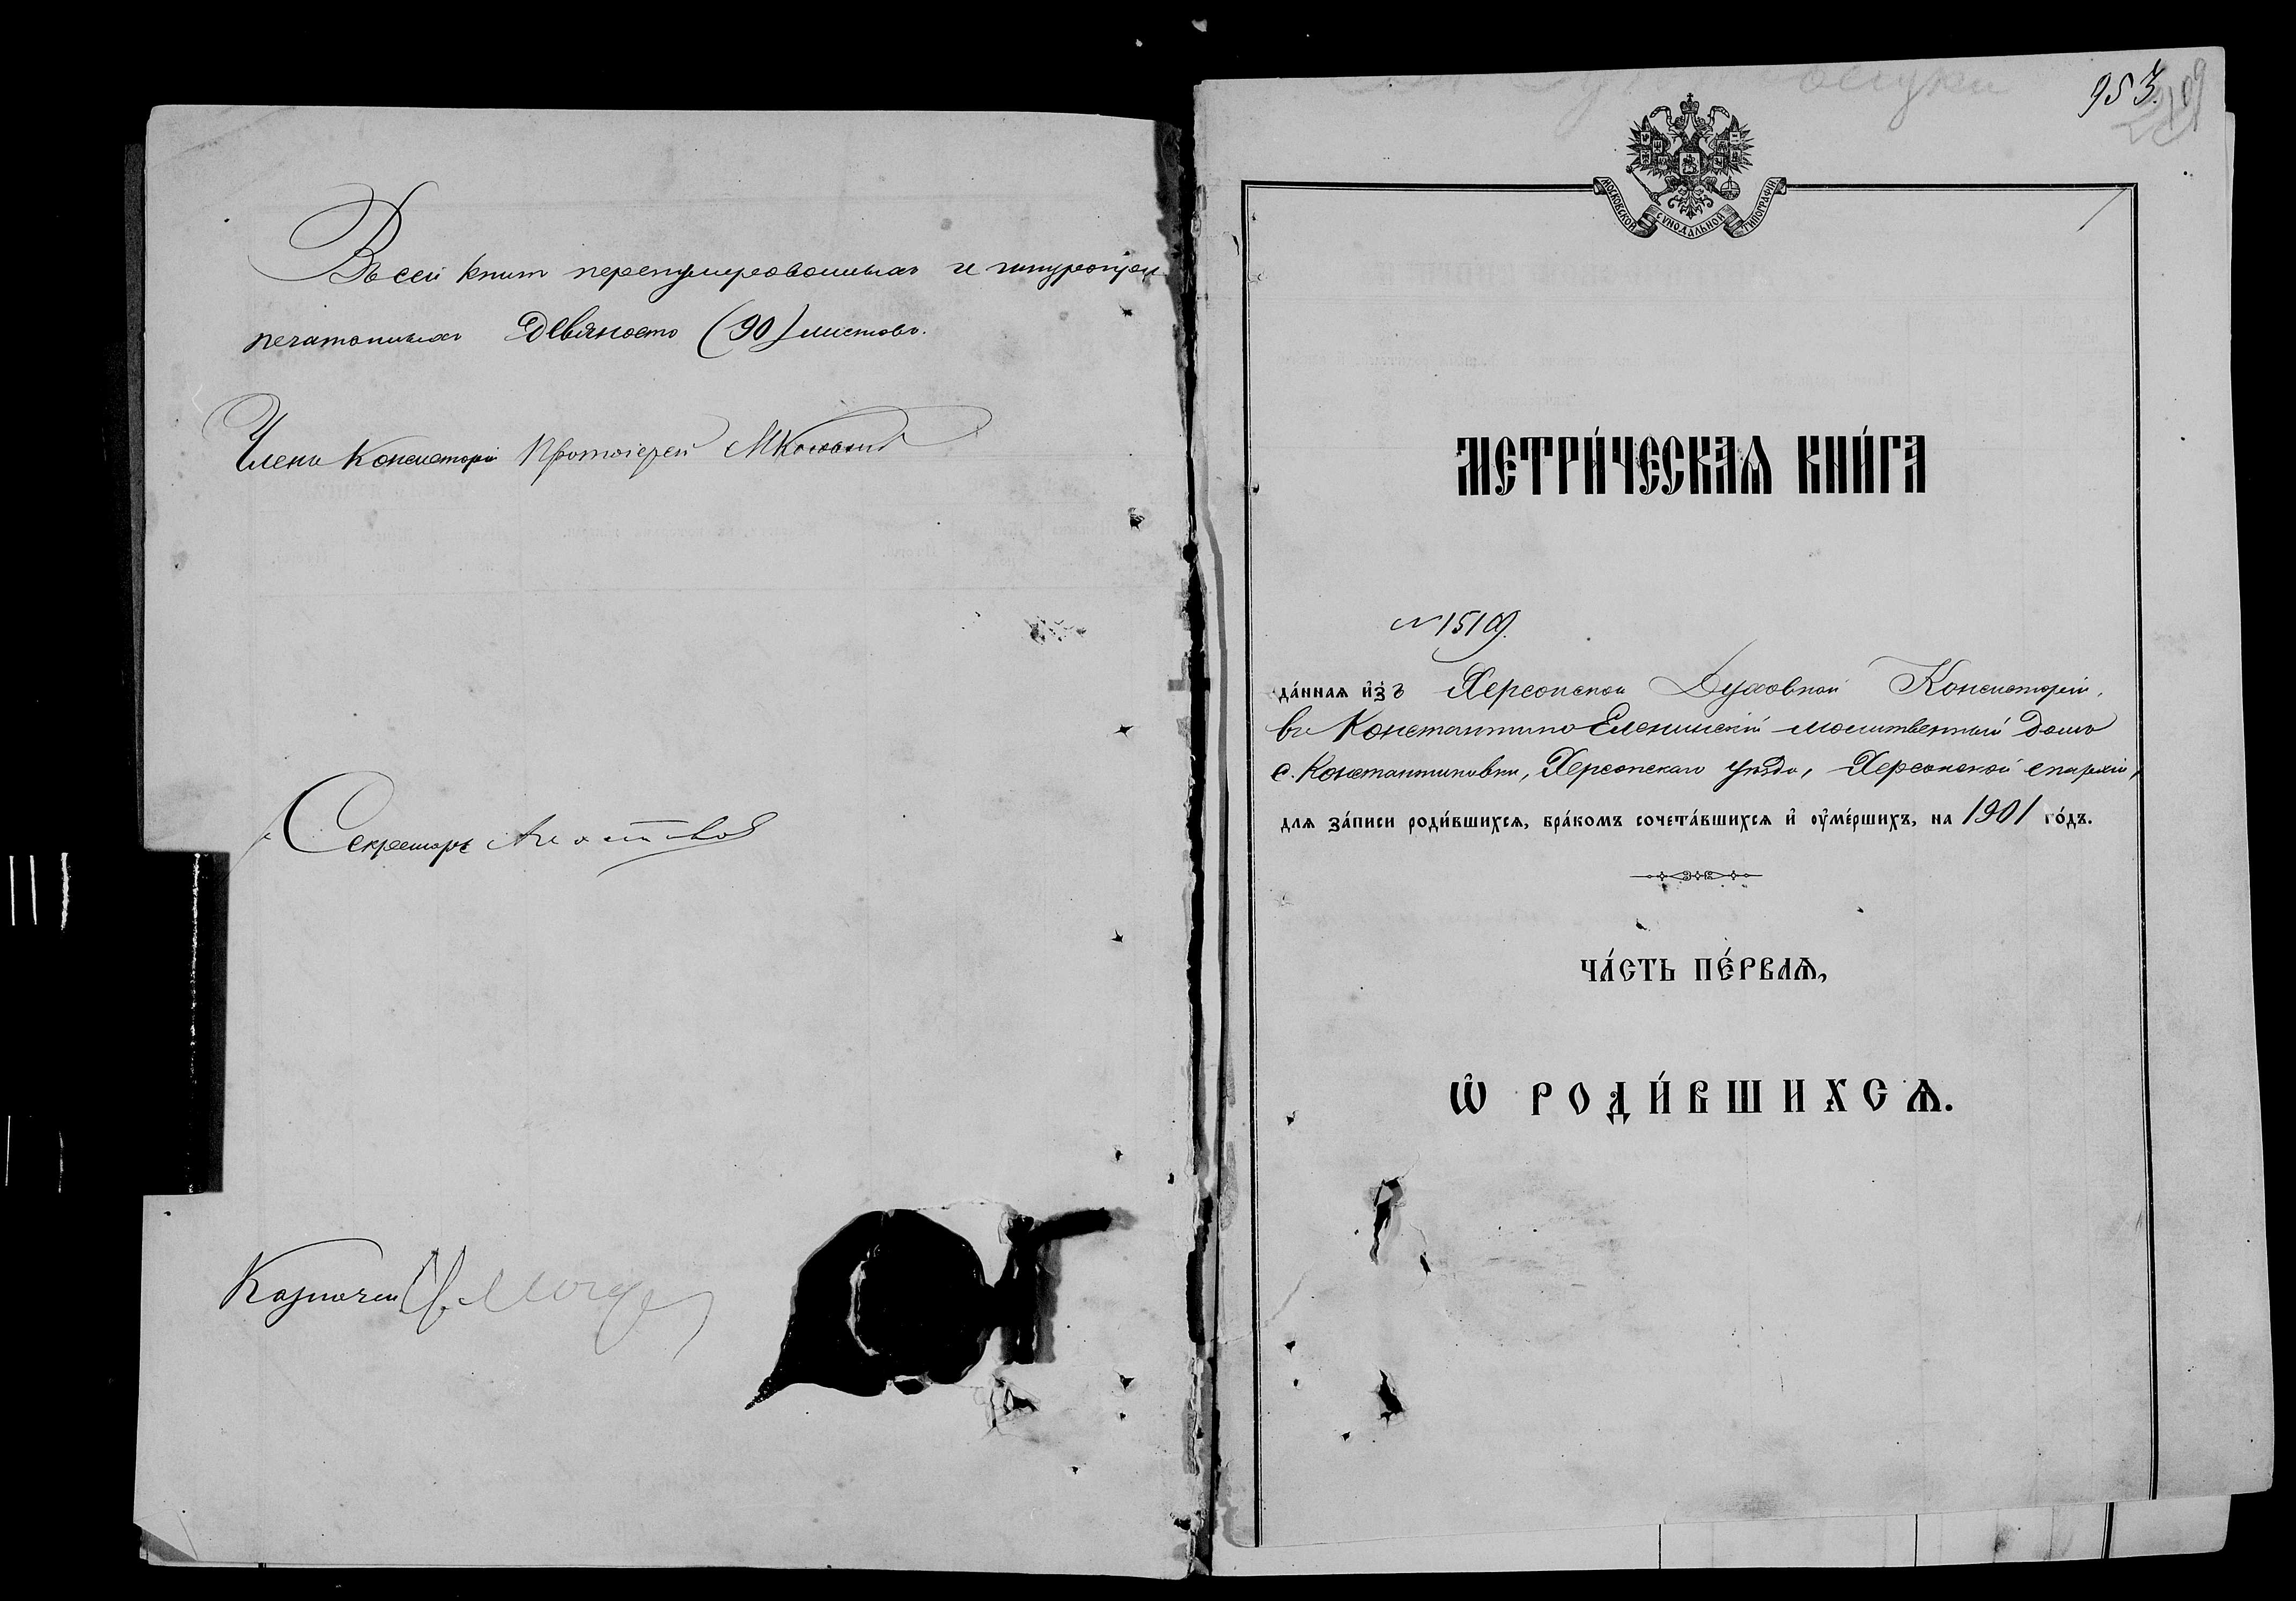 Въ сей книгѣ перенумерованныхъ и шнуропри
печатанныхъ Девяносто (90) листовъ.
Членъ Консисторіи Протоіерей
Секретарь
Казначей
953.
МОСКОВСКОЙ СѴНОДАЛЬНОЙ ТИПОГРАФІИ
МЕТРИ́ЧЕСКАѦ КНИ́ГА
№ 1519.
да́ннаѧ и҆зъ Херсонской Духовной Консисторіи,
въ Константино Еленинскій молитвенный домъ
с. Константиновки, Херсонскаго уѣзда, Херсонской епархіи,
длѧ за́писи роди́вшихсѧ, бра́комъ сочета́вшихсѧ и҆ оу҆ме́ршихъ, на 1901 го́дъ.
ЧА́СТЬ ПЕ́РВАѦ,
Ѡ҆ РОДИ́ВШИХСѦ.